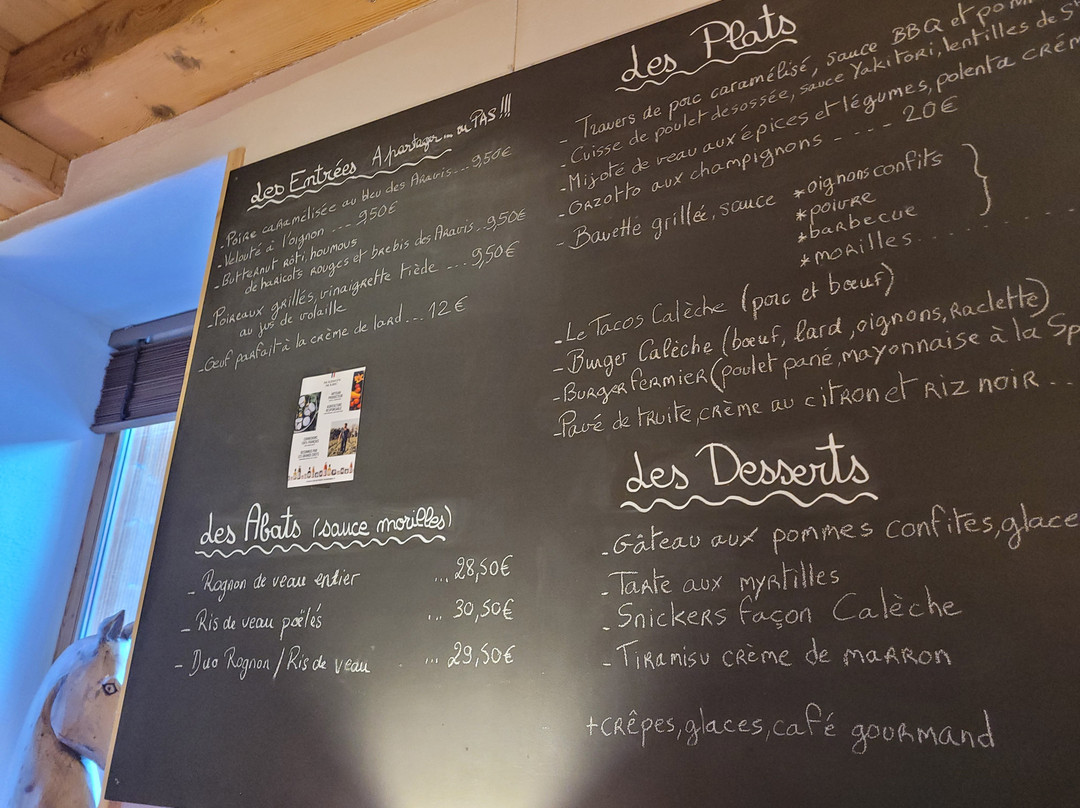 des Entrées A partager... ou PAS!!!
- Poire caramélisée au bleu des Aravis... 9,50€
- Velouté à l'oignon .... 9,50€
- Butternut rôti, houmous
de haricots rouges et brebis des Aravis.. 9,50€
- Poireaux grillés, vinaigrette tiède ... 9,50€
au jus de volaille
- Oeuf parfait à la crème de lard... 12€
des Abats (sauce morilles)
- Rognon de veau entier ... 28,50€
- Ris de veau poêlés ... 30,50€
- Duo Rognon / Ris de veau ... 29,50€
des Plats
- Travers de porc caramélisé, sauce BBQ et
- Cuisse de poulet desossée, sauce Yakitori, lentilles de
- Mijoté de veau aux épices et légumes, polenta
- Orzotto aux champignons - . - - 20€
- Bavette grillée, sauce * oignons confits
* poivre
* barbecue
* morilles.....
- Le Tacos Calèche (porc et bœuf)
- Burger Calèche (bœuf, lard, oignons, raclette)
- Burger fermier (poulet pané, mayonnaise à la
- Pavé de truite, crème au citron et riz noir...
des Desserts
- Gâteau aux pommes confites, glace
- Tarte aux myrtilles
- Snickers façon Calèche
- Tiramisu crème de marron
+ crêpes, glaces, café gourmand